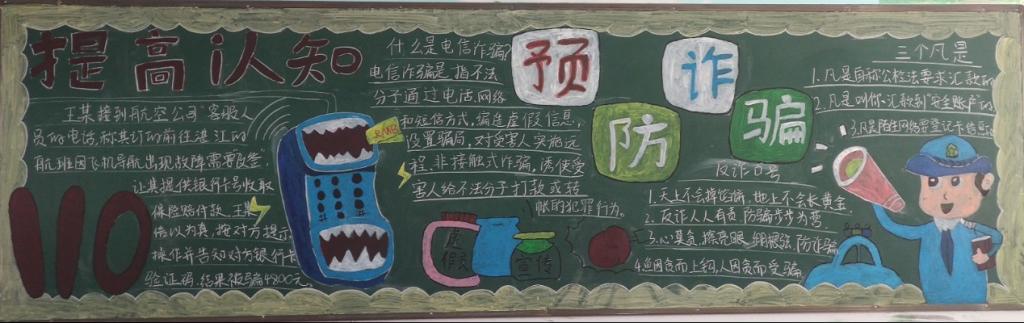 提高认知
王某接到航空公司“客服人
员的电话,称其订的前往湛江的
航班因飞机导航出现故障需要改签
让其提供银行卡号收取
保险赔付款,王某
信以为真,按对方提示
操作并告知对方银行卡
验证码,结果被骗4800元
110
什么是电信诈骗?
电信诈骗是指不法
分子通过电话、网络
和短信方式,编造虚假信息,
设置骗局,对受害人实施远
程、非接触式诈骗,诱使受
害人给不法分子打款或转
帐的犯罪行为。
虚假
宣传
预防诈骗
反诈口号
1.天上不会掉馅饼,地上不会长黄金.
2.反诈人人有责 防骗步步为营.
3.心莫贪,擦亮眼,绷根弦,防诈骗
4.鱼因贪而上钩,人因贪而受骗
三个凡是
1.凡是自称公检法要求汇款的
2.凡是叫你汇款到“安全账户”的
3.凡是陌生网络要登记卡信息的